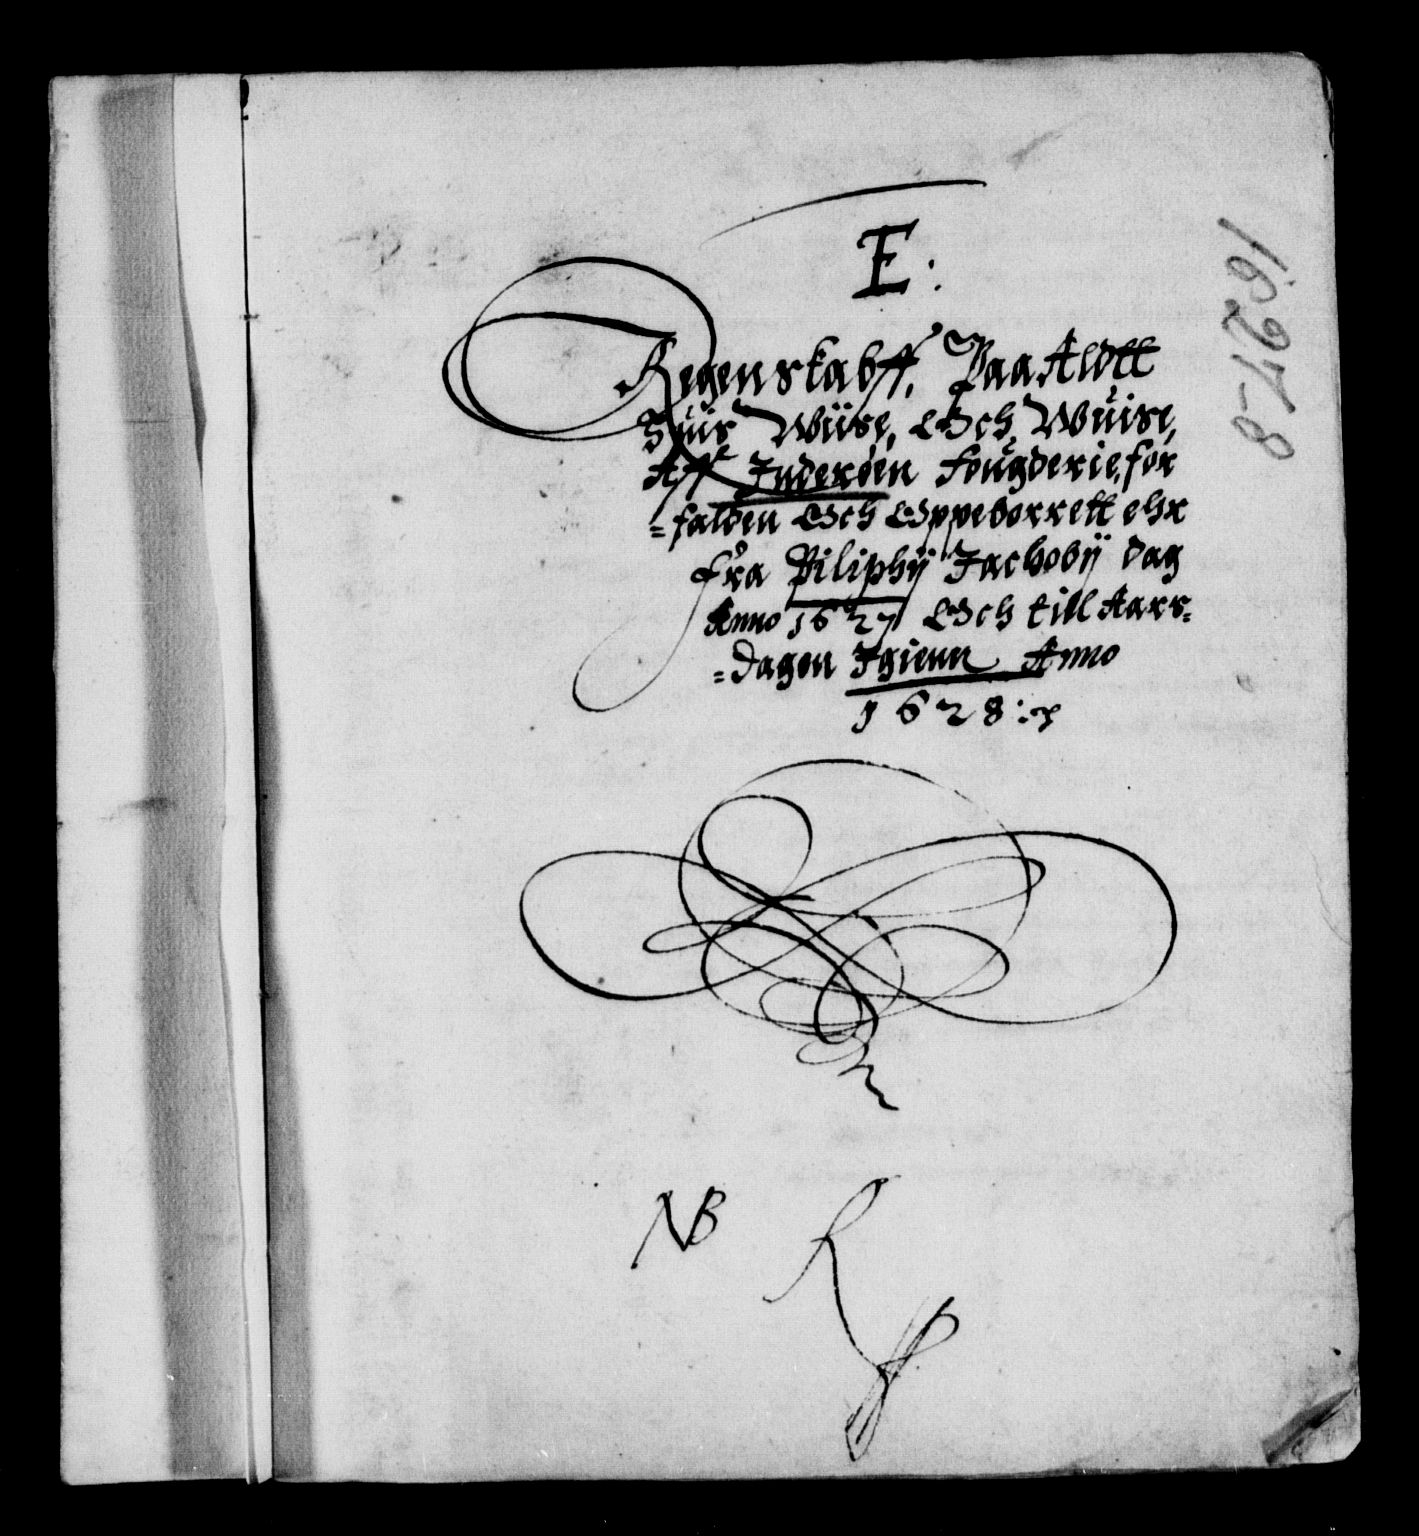 E:
Regenskabff, Paa Aldtt
Huis Wiise, Och Wuise,
Aff Inderøen Fougderie, for
=falden Och Oppeborrett ehr
fra Piliphij Jachobij dag
Anno 1627 Och till Aars=
=dagen Igienn Anno
1628:
NB
R
1627-28